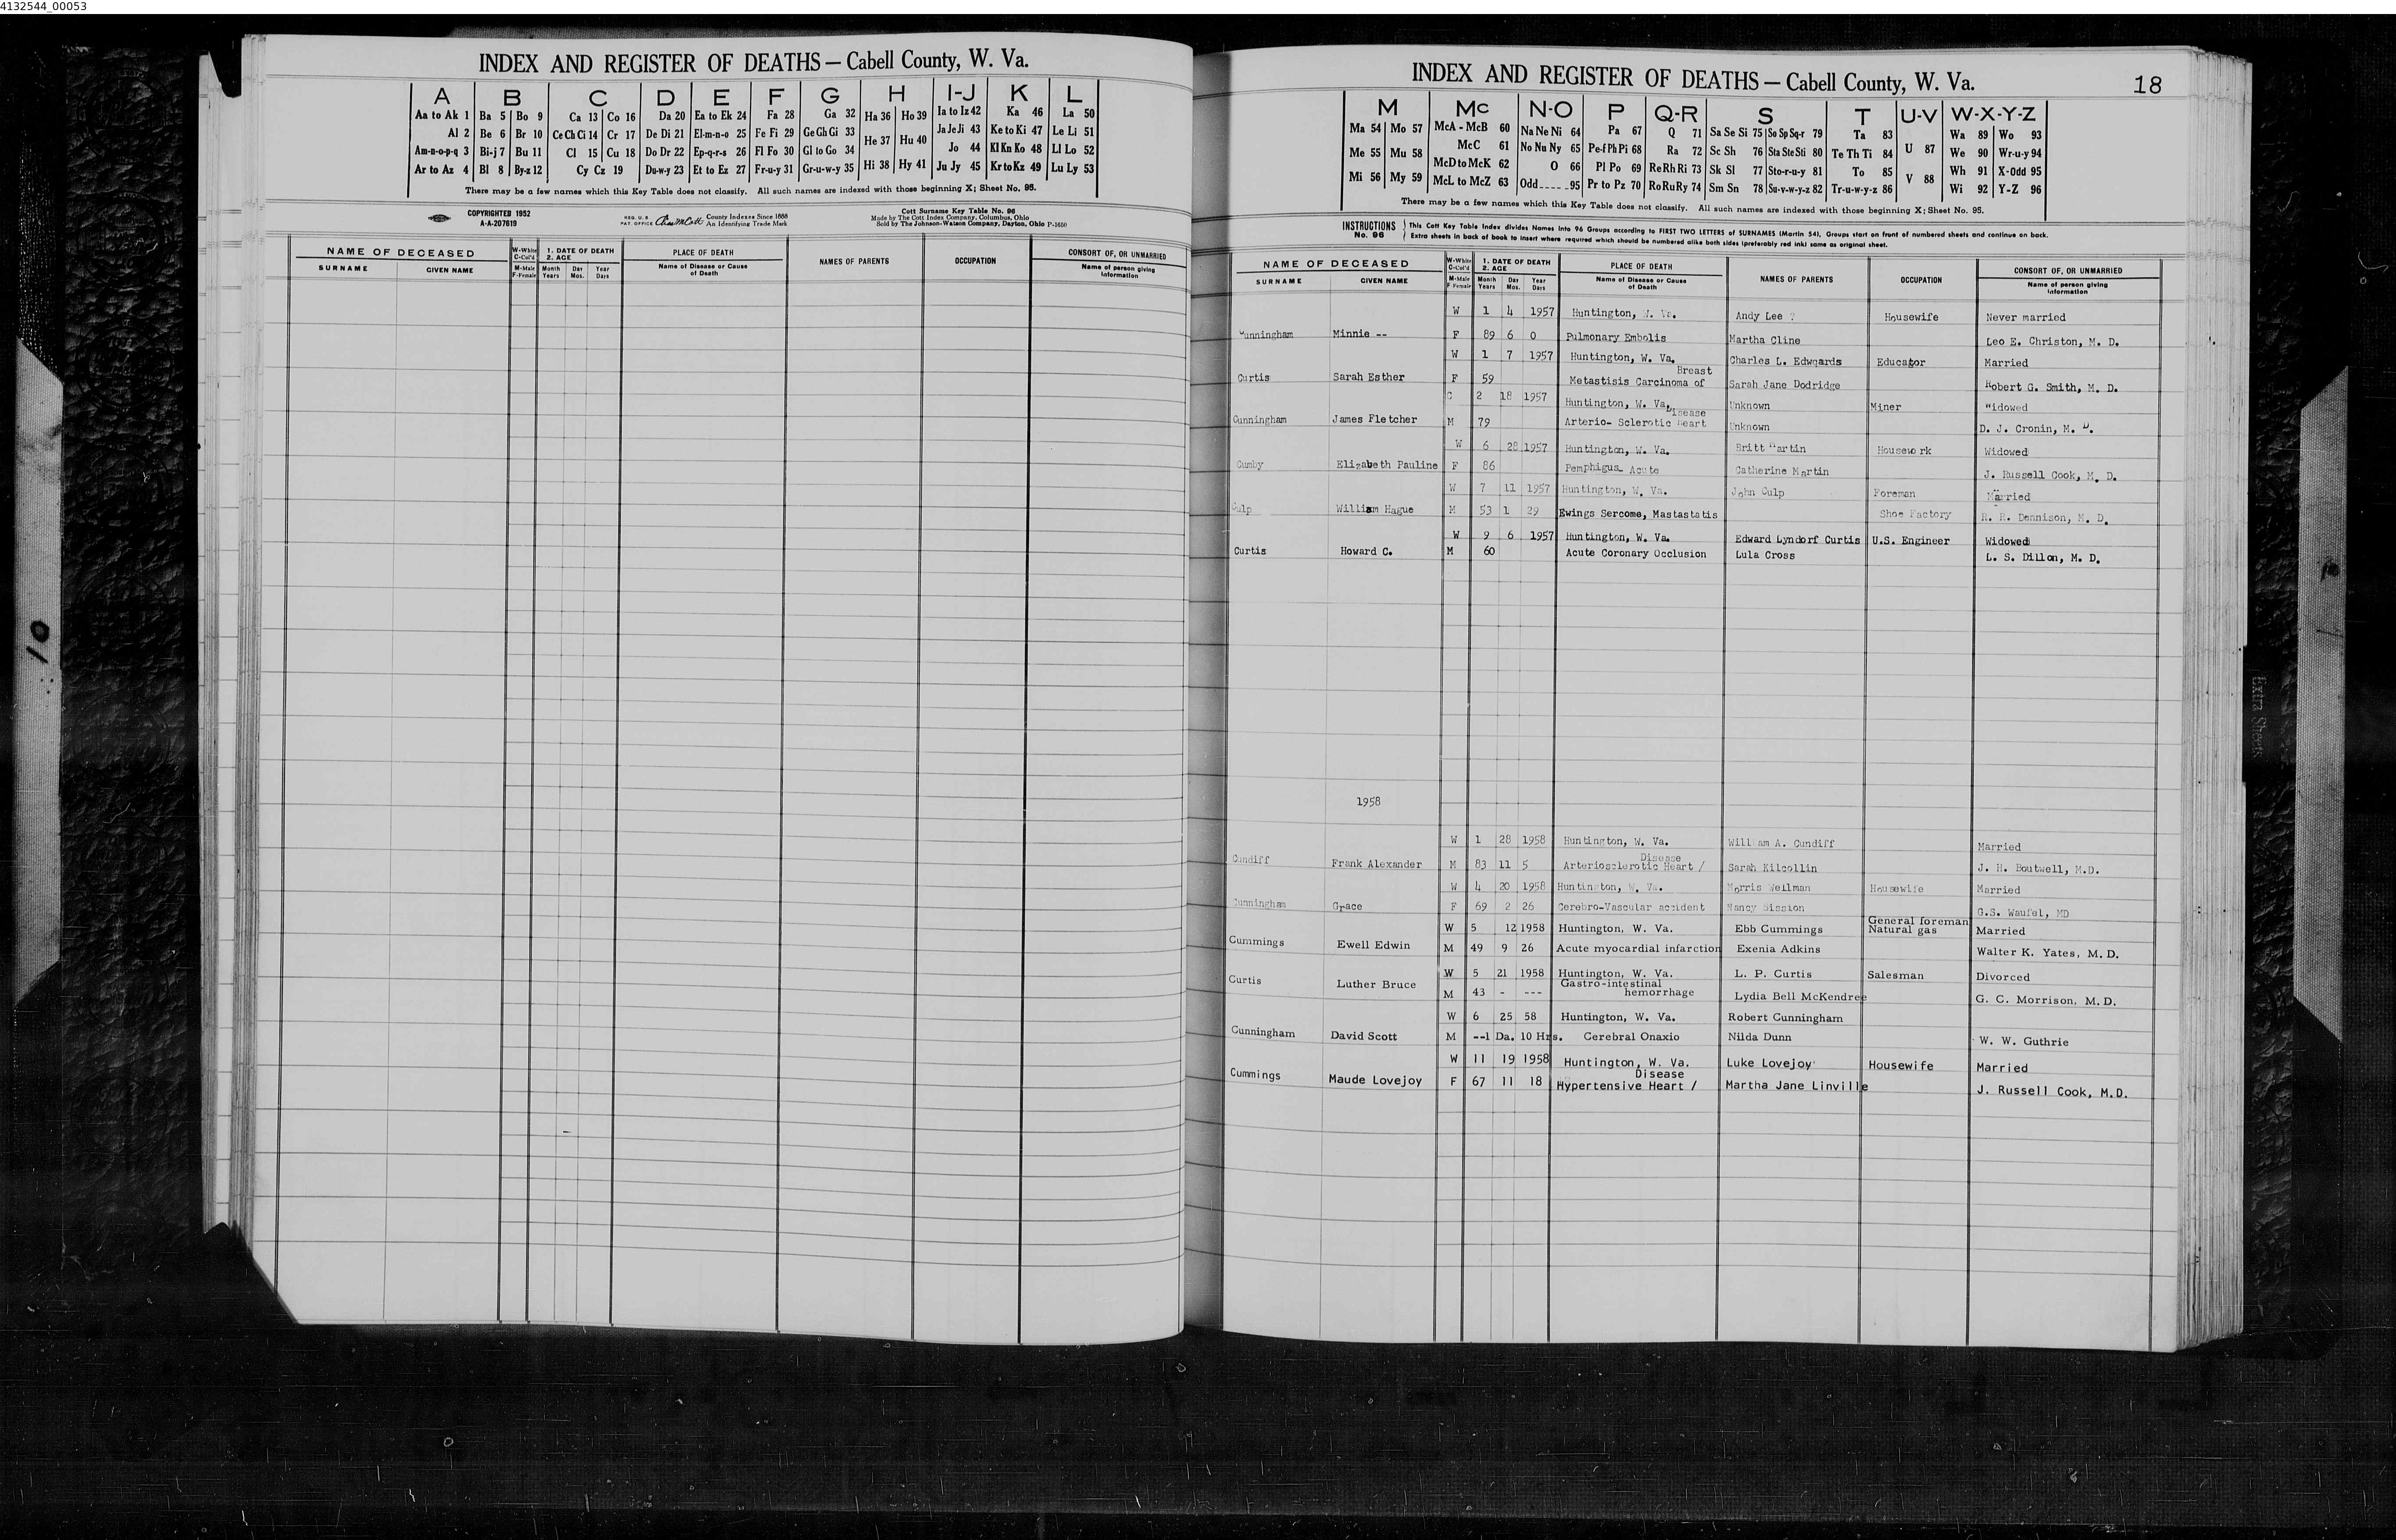 4132544_00053
INDEX AND REGISTER OF DEATHS — Cabell County, W. Va.
A B C D E F G H I-J K L
Aa to Ak 1 Ba 5 Bo 9 Ca 13 Co 16 Da 20 Ea to Ek 24 Fa 28 Ga 32 Ha 36 Ho 39 Ia to Iz 42 Ka 46 La 50
Al 2 Be 6 Br 10 Ce Ch Ci 14 Cr 17 De Di 21 El-m-n-o 25 Fe Fi 29 Ge Gh Gi 33 He 37 Hu 40 Ja Je Ji 43 Ke to Ki 47 Le Li 51
Am-n-o-p-q 3 Bi-j 7 Bu 11 Cl 15 Cu 18 Do Dr 22 Ep-q-r-s 26 Fl Fo 30 Gl to Go 34 Hi 38 Hy 41 Jo 44 Kl Kn Ko 48 Ll Lo 52
Ar to Az 4 Bl 8 By-z 12 Cy Cz 19 Du-w-y 23 Et to Ez 27 Fr-u-y 31 Gr-u-w-y 35 Ju Jy 45 Kr to Kz 49 Lu Ly 53
There may be a few names which this Key Table does not classify. All such names are indexed with those beginning X; Sheet No. 95.
COPYRIGHTED 1952
A-A-207619
REG. U.S. PAT. OFFICE County Indexes Since 1888
An Identifying Trade Mark
Cott Surname Key Table No. 96
Made by The Cott Index Company, Columbus, Ohio
Sold by The Johnson-Watson Company, Dayton, Ohio P-1650
NAME OF DECEASED
SURNAME GIVEN NAME
W-White C-Col'd
M-Male F-Female
1. DATE OF DEATH
2. AGE
Month Day Year
Years Mos. Days
PLACE OF DEATH
Name of Disease or Cause of Death
NAMES OF PARENTS
OCCUPATION
CONSORT OF, OR UNMARRIED
Name of person giving information
INDEX AND REGISTER OF DEATHS — Cabell County, W. Va.
18
M Mc N-O P Q-R S T U-V W-X-Y-Z
Ma 54 Mo 57 McA - McB 60 Na Ne Ni 64 Pa 67 Q 71 Sa Se Si 75 So Sp Sq-r 79 Ta 83 U 87 Wa 89 Wo 93
Me 55 Mu 58 McC 61 No Nu Ny 65 Pe-f Ph Pi 68 Ra 72 Sc Sh 76 Sta Ste Sti 80 Te Th Ti 84 V 88 We 90 Wr-u-y 94
Mi 56 My 59 McD to McK 62 O 66 Pl Po 69 Re Rh Ri 73 Sk Sl 77 Sto-r-u-y 81 To 85 Wh 91 X-Odd 95
McL to McZ 63 Odd - - - - 95 Pr to Pz 70 Ro Ru Ry 74 Sm Sn 78 Su-v-w-y-z 82 Tr-u-w-y-z 86 Wi 92 Y-Z 96
There may be a few names which this Key Table does not classify. All such names are indexed with those beginning X; Sheet No. 95.
INSTRUCTIONS No. 96
This Cott Key Table Index divides Names into 96 Groups according to FIRST TWO LETTERS of SURNAMES (Martin 54). Groups start on front of numbered sheets and continue on back.
Extra sheets in back of book to insert where required which should be numbered alike both sides (preferably red ink) same as original sheet.
NAME OF DECEASED
SURNAME GIVEN NAME
W-White C-Col'd
M-Male F-Female
1. DATE OF DEATH
2. AGE
Month Day Year
Years Mos. Days
PLACE OF DEATH
Name of Disease or Cause of Death
NAMES OF PARENTS
OCCUPATION
CONSORT OF, OR UNMARRIED
Name of person giving information
W 1 4 1957 Huntington, W. Va. Andy Lee ? Housewife Never married
Cunningham Minnie -- F 89 6 0 Pulmonary Embolis Martha Cline Leo E. Christon, M. D.
W 1 7 1957 Huntington, W. Va. Charles L. Edwqards Educator Married
Breast
Curtis Sarah Esther F 59 Metastisis Carcinoma of Sarah Jane Dodridge Robert G. Smith, M. D.
C 2 18 1957 Huntington, W. Va. Unknown Miner Widowed
Disease
Cunningham James Fletcher M 79 Arterio- Sclerotic Heart Unknown D. J. Cronin, M. D.
W 6 28 1957 Huntington, W. Va. Britt Martin Housework Widowed
Cumby Elizabeth Pauline F 86 Pemphigus Acute Catherine Martin J. Russell Cook, M. D.
W 7 11 1957 Huntington, W. Va. John Culp Foreman Married
Culp William Hague M 53 1 29 Ewings Sercome, Mastastatis Shoe Factory R. R. Dennison, M. D.
W 9 6 1957 Huntington, W. Va. Edward Lyndorf Curtis U.S. Engineer Widowed
Curtis Howard C. M 60 Acute Coronary Occlusion Lula Cross L. S. Dillon, M. D.
1958
W 1 28 1958 Huntington, W. Va. William A. Cundiff Married
Disease
Cundiff Frank Alexander M 83 11 5 Arteriosclerotic Heart / Sarah Kilcollin J. H. Boutwell, M.D.
W 4 20 1958 Huntington, W. Va. Morris Wellman Housewife Married
Cunningham Grace F 69 2 26 Cerebro-Vascular accident Nancy Sission G.S. Waufel, MD
General foreman
W 5 12 1958 Huntington, W. Va. Ebb Cummings Natural gas Married
Cummings Ewell Edwin M 49 9 26 Acute myocardial infarction Exenia Adkins Walter K. Yates, M. D.
W 5 21 1958 Huntington, W. Va. L. P. Curtis Salesman Divorced
Gastro-intestinal
Curtis Luther Bruce M 43 - --- hemorrhage Lydia Bell McKendree G. C. Morrison, M. D.
W 6 25 58 Huntington, W. Va. Robert Cunningham
Cunningham David Scott M --1 Da. 10 Hrs. Cerebral Onaxio Nilda Dunn W. W. Guthrie
W 11 19 1958 Huntington, W. Va. Luke Lovejoy Housewife Married
Disease
Cummings Maude Lovejoy F 67 11 18 Hypertensive Heart / Martha Jane Linville J. Russell Cook, M.D.
Extra Sheets
10